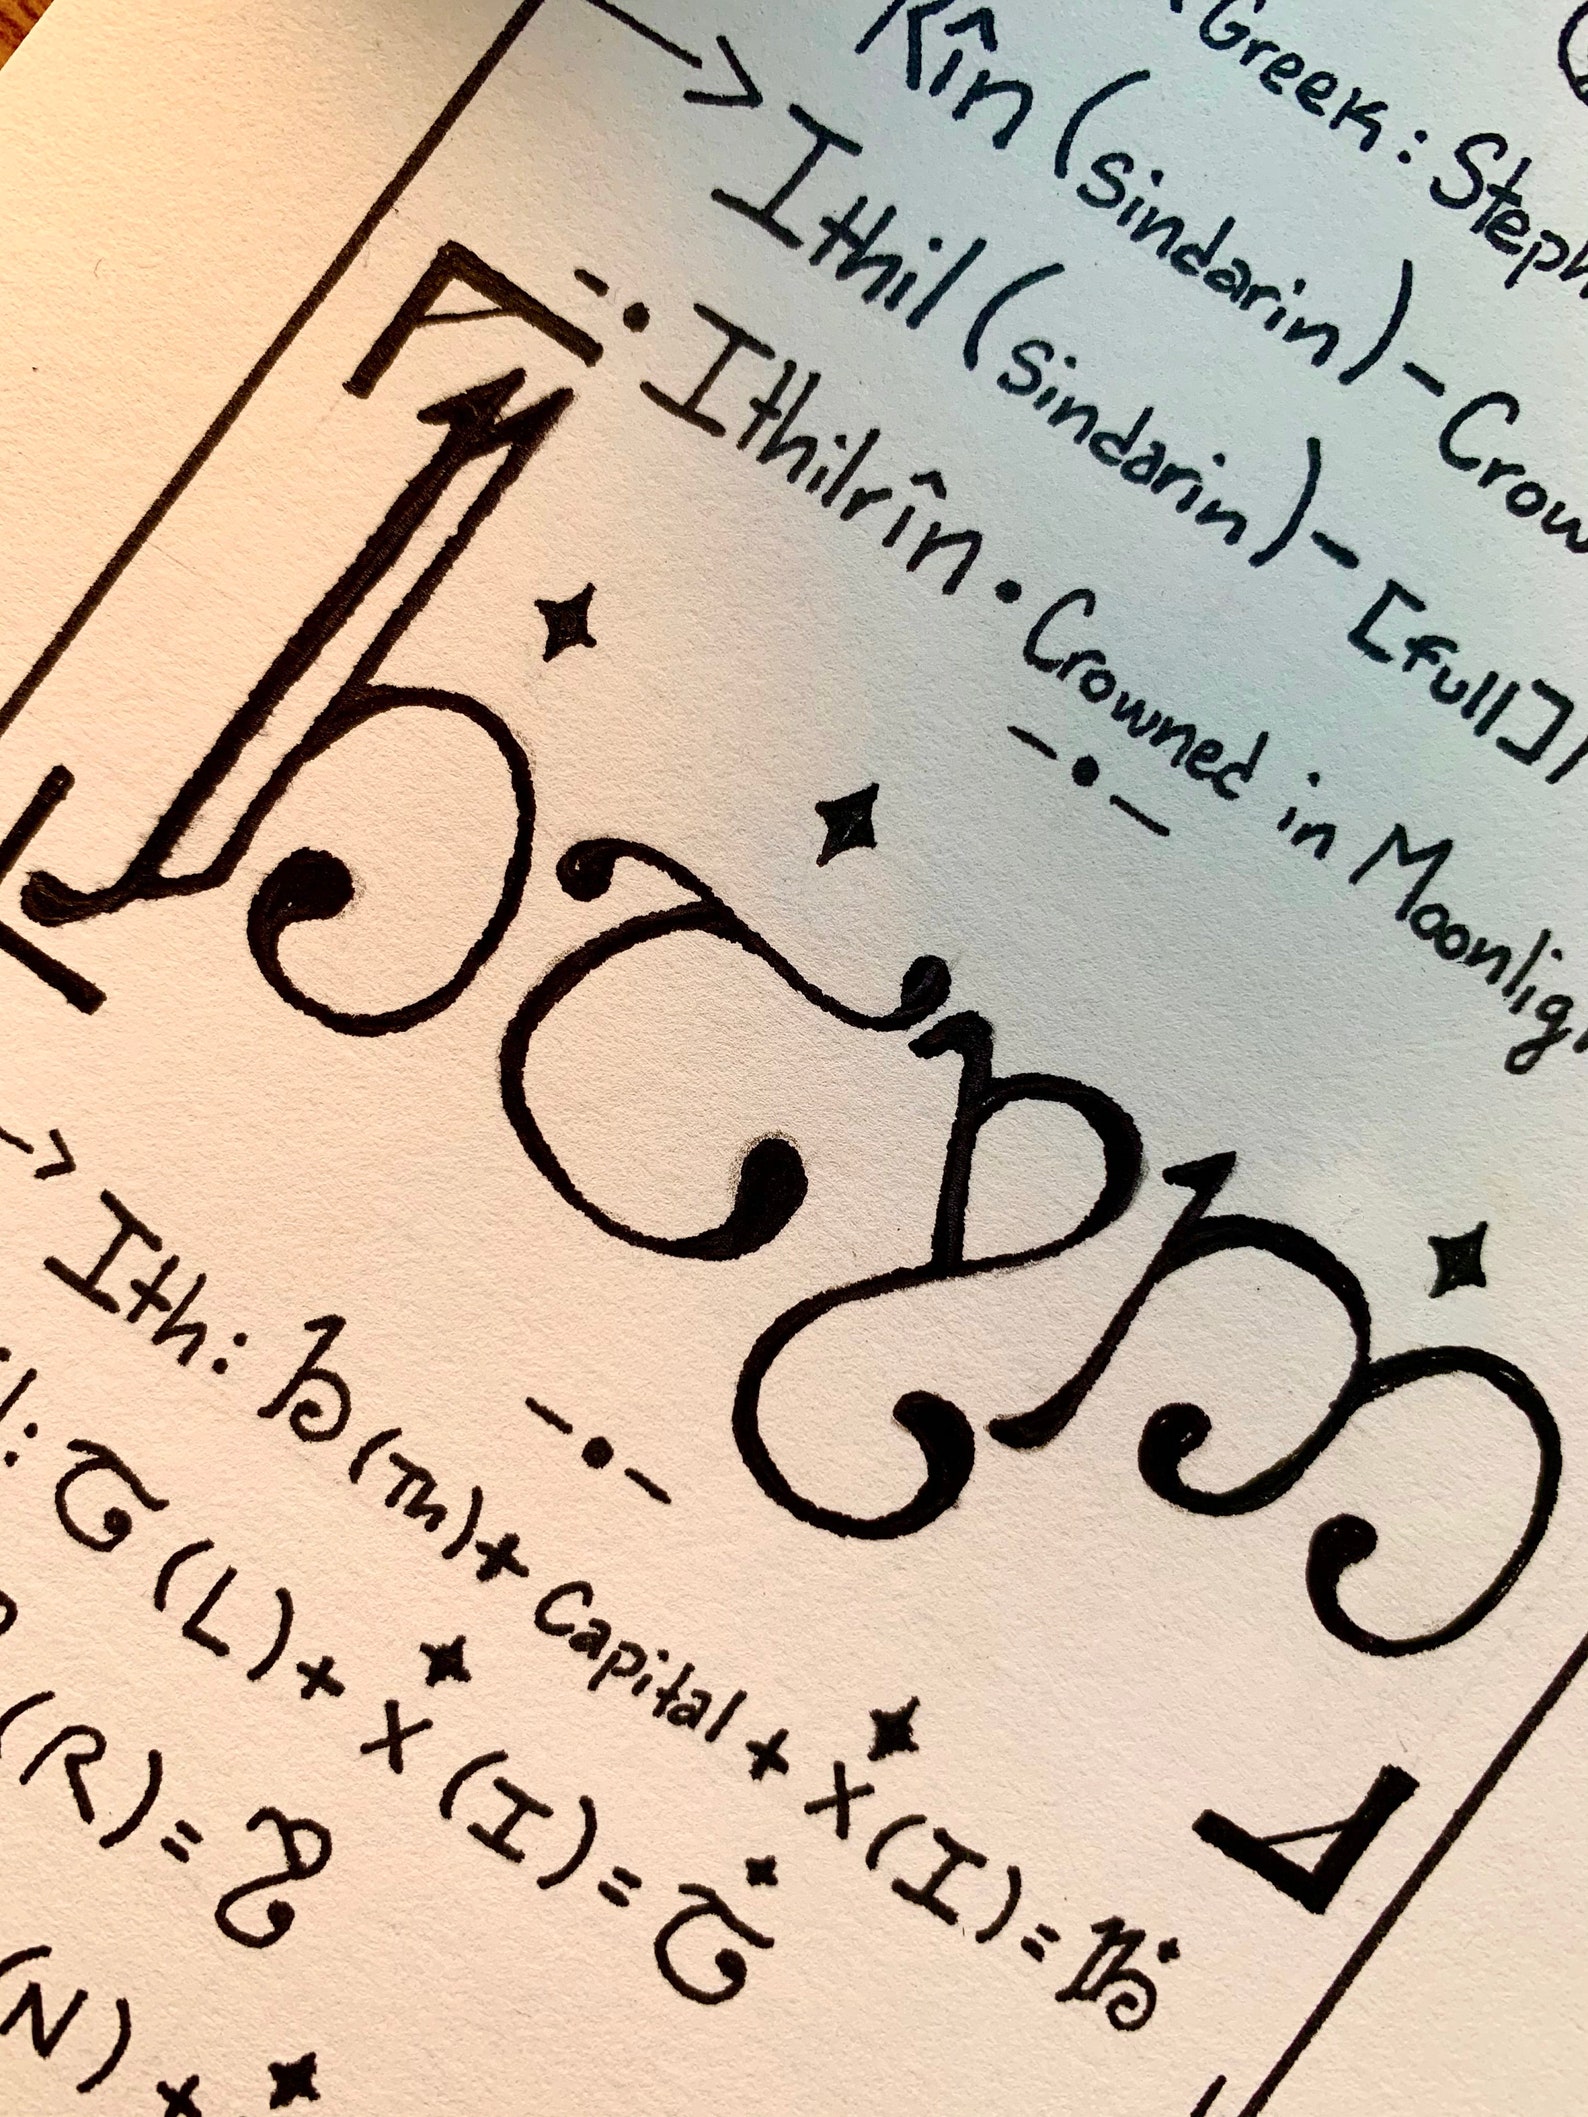 Greek: Steph
Rîn (sindarin) - Crow
→ Ithil (sindarin) - [full]
- • Ithilrîn • Crowned in Moonlig
- • -
→ Ith: (Th) + Capital + x (I) =
l: (L) + x (I) =
(R) =
(N) x